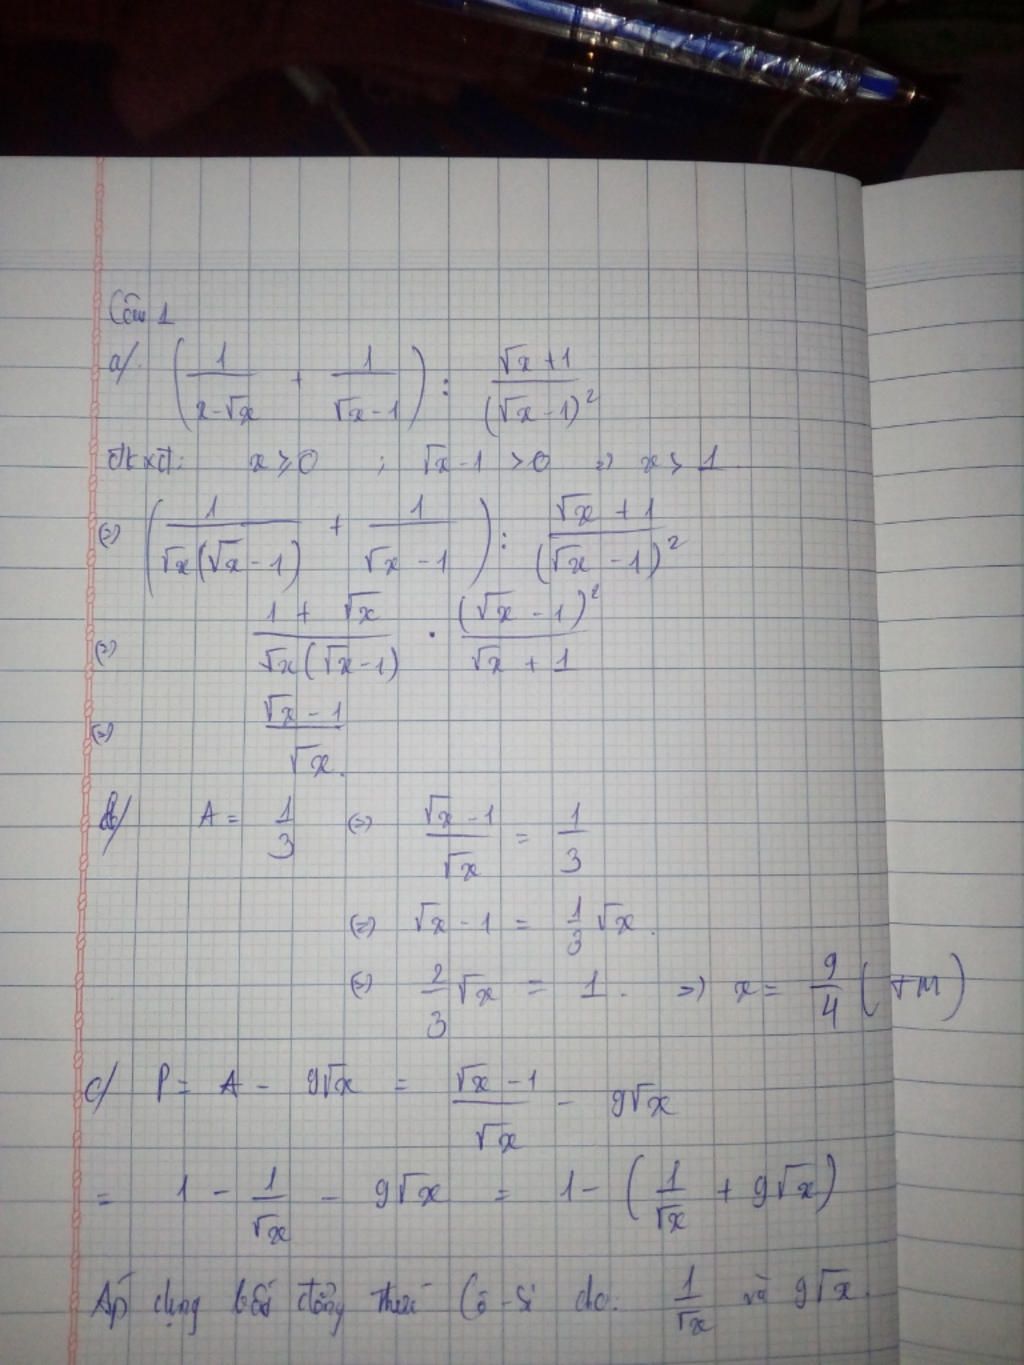 Câu 1
a/. (1/(x-√x) + 1/(√x-1)) : (√x+1)/(√x-1)²
đkxđ: x ≥ 0 ; √x-1 > 0 => x > 1
(=) (1/(√x(√x-1)) + 1/(√x-1)) : (√x+1)/(√x-1)²
(=) (1+√x)/(√x(√x-1)) . (√x-1)²/(√x+1)
(=) (√x-1)/√x.
b/ A = 1/3 (=) (√x-1)/√x = 1/3
(=) √x-1 = 1/3 √x.
(=) 2/3 √x = 1. => x = 9/4 (TM)
c/ P = A - 9√x = (√x-1)/√x - 9√x
= 1 - 1/√x - 9√x = 1 - (1/√x + 9√x)
Áp dụng bất đẳng thức Cô-Si cho: 1/√x và 9√x.